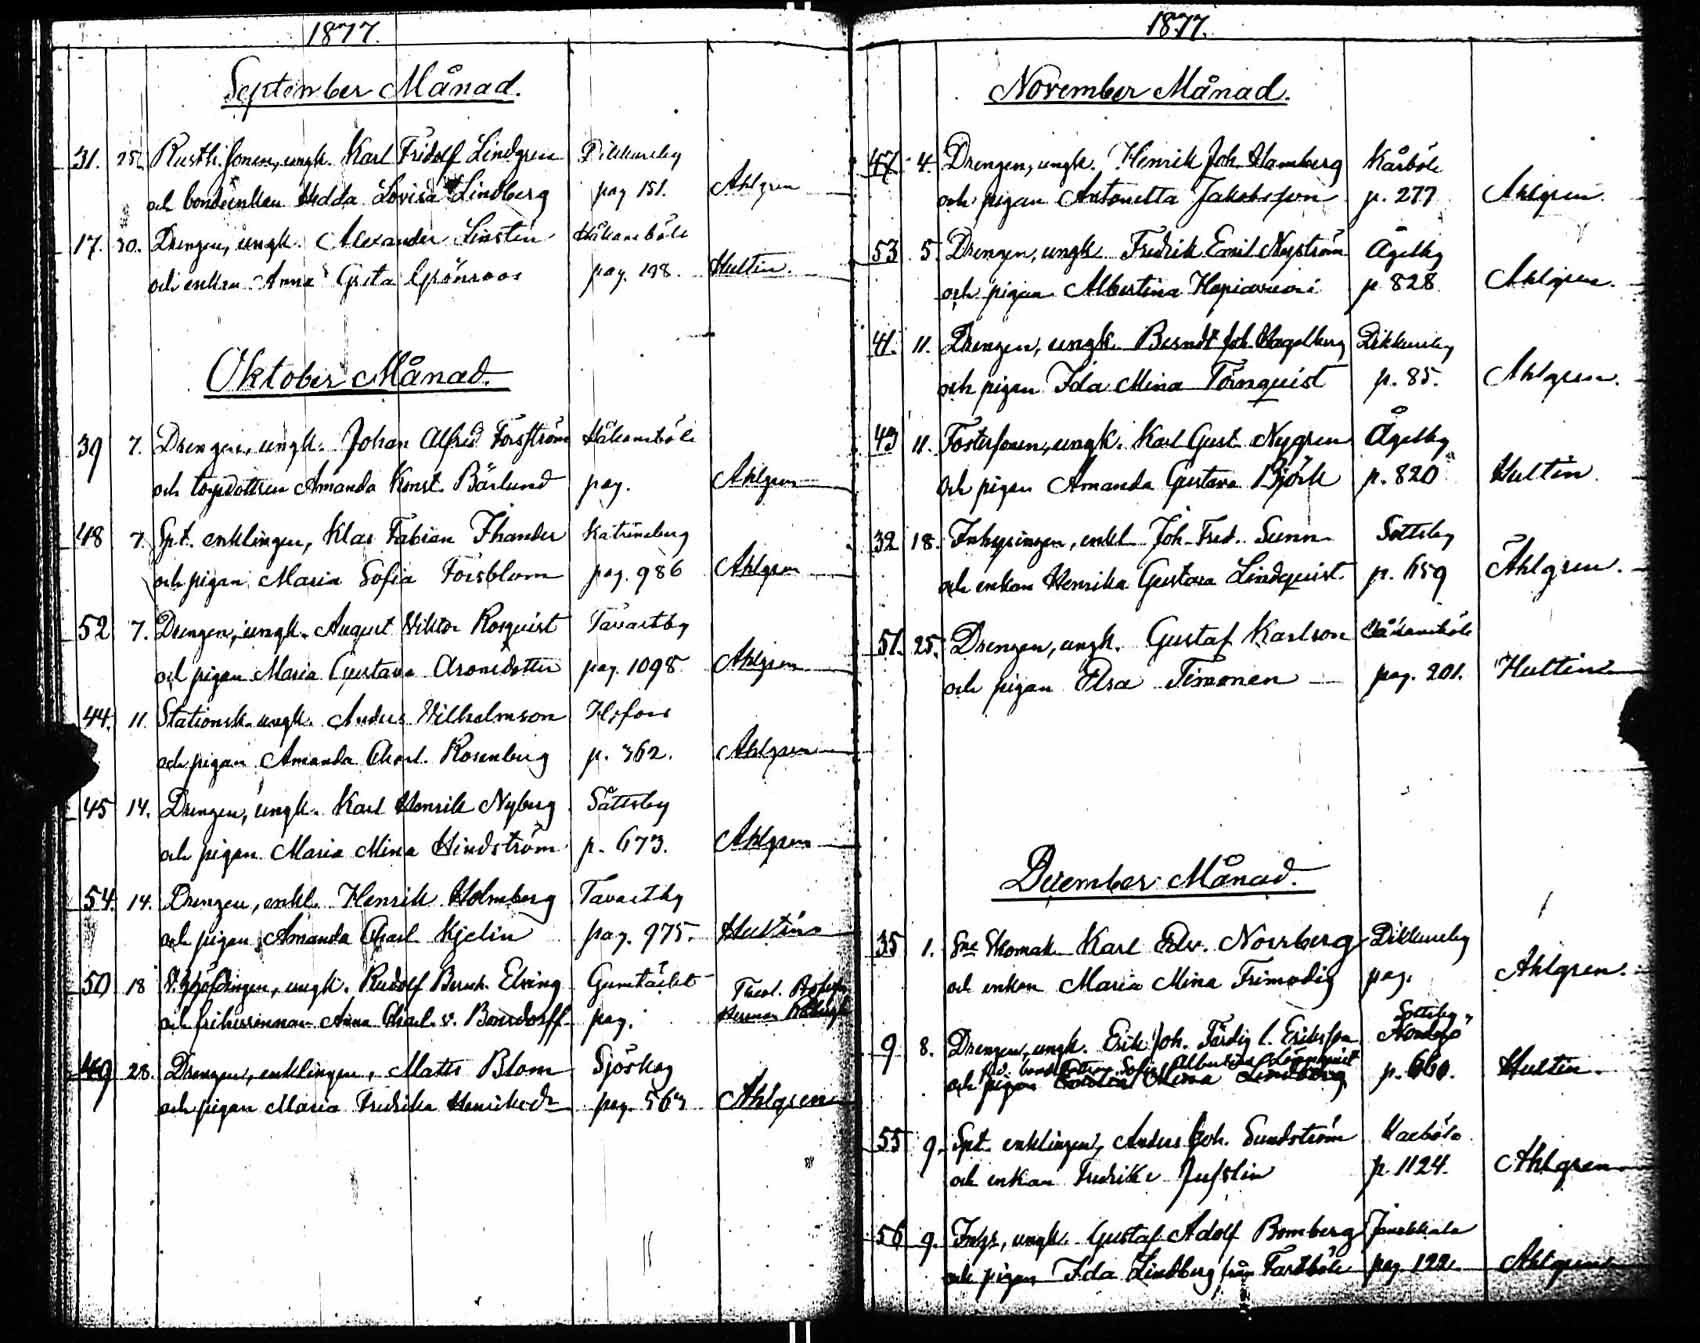 1877.
September Månad.
31. 25. Rusth. sonen, ungk. Karl Fridolf Lindgren Dickursby
och bondeenkan Hedda Lovisa Lindberg pag 151. Ahlgren
17. 30. Drengen, ungk. Alexander Linstén Håkansböle
och enkan Anna Gusta Grönroos pag. 198. Hultin.
Oktober Månad.
39 7. Drengen, ungk. Johan Alfred Forsström Håkansböle
och torpdottren Amanda Konst. Bärlund pag. Ahlgren
48 7. Spt. enklingen, Klas Fabian Thander Katrineberg
och pigan Maria Sofia Forsblom pag. 986 Ahlgren
52 7. Drengen, ungk. August Viktor Rosquist Tavastby
och pigan Maria Gustava Aronsdotter pag. 1098 Ahlgren
44. 11. Stationsk. ungk. Anders Vilhelmson H:fors
och pigan Amanda Charl. Rosenberg p. 362. Ahlgren
45 14. Drengen, ungk. Karl Henrik Nyberg Sättsby
och pigan Maria Mina Hindström p. 673. Ahlgren
54. 14. Drengen, enkl. Henrik Holmberg Tavastby
och pigan Amanda Charl. Kjelin pag. 975. Hultin
50 18 ungk. Rudolf Elving Theol.
och friherrinnan Anna Charl. v. Bonsdorff pag. Herman Råbergh
49 28. Drengen, enklingen, Matts Blom Sjöskog
och pigan Maria Fredrika Henriksdr pag. 563 Ahlgren
1877.
November Månad.
47 4. Drengen, ungk. Henrik Joh. Hamberg Kårböle
och pigan Antonetta Jakobsson p. 277 Ahlgren.
53 5. Drengen, ungk. Fredrik Emil Nyström Ågelby
och pigan Albertina p. 828 Ahlgren.
41. 11. Drengen, ungk. Berndt Joh. Hagelberg Dickursby
och pigan Ida Mina Törnquist p. 85. Ahlgren.
43 11. Fostersonen, ungk. Karl Gust. Nygren Ågelby
och pigan Amanda Gustava Björk p. 820 Hultin
32 18. Inhysingen, enkl. Joh. Fred. Sunn Sottsby
och enkan Henrika Gustava Lindquist. p. 659 Ahlgren.
51. 25. Drengen, ungk. Gustaf Karlson Håkansböle
och pigan Elsa Timonen pag. 201. Hultin
December Månad.
35 1. Sne Skomak. Karl Edv. Norrberg Dickursby
och enkan Maria Mina Frimodig pag. Ahlgren.
Sottsby
9 8. Drengen, ungk. Erik Joh. Färdig l. Eriksson
Sofia Albertina
och pigan Mina Lindberg p. 660. Hultin.
55 9. Spt. enklingen, Anders Joh. Sundström
och enkan Fredrika Juslin p. 1124. Ahlgren
56 9. Inhys, ungk. Gustaf Adolf Bomberg Janakkala
och pigan Ida Lindberg från Fastböle pag. 122. Ahlgren